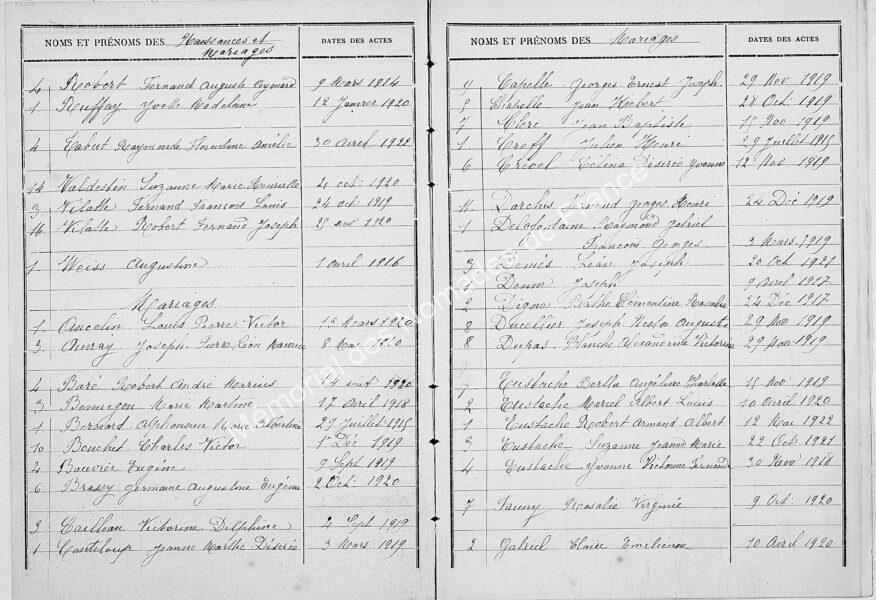 NOMS ET PRÉNOMS DES Naissances et Mariages DATES DES ACTES
4 Robert Fernand Auguste Aymard 9 Mars 1914
1 Ruffay Yvette Madeleine 12 Janvier 1920
4 Tabut Raymonde Florentine Amélie 30 Avril 1922
14 Valdestin Suzanne Marie Henriette 4 oct: 1920
3 Vilatte Fernand François Louis 24 oct 1919
16 Vilatte Robert Fernand Joseph 25 nov 1920
1 Weiss Augustine 1 avril 1916
Mariages
1 Ancelin Louis Pierre Victor 13 Mars 1920
3 Auray Joseph Pierre Léon Maurice 8 Mai 1920
4 Baré Robert André Marius 14 aout 1920
3 Bennegon Marie Martine 17 Avril 1918
1 Bernard Alphonsine Marie Albertine 29 Juillet 1915
10 Bouchet Charles Victor 1er Déc 1919
4 Bouvier Eugène 9 Sept 1919
6 Brassy Germaine Augustine Eugénie 2 Oct: 1920
3 Cailleau Victorine Delphine 4 Sept 1919
1 Casteloup Jeanne Marthe Désirée 3 Mars 1919
NOMS ET PRÉNOMS DES Mariages DATES DES ACTES
9 Capelle Georges Ernest Joseph 29 Nov 1919
5 Chapelle Jean Hébert 28 Oct 1919
7 Clerc Jean Baptiste 15 Nov 1919
1 Creff Julien Henri 29 Juillet 1915
6 Créoel Célina Désirée Yvonne 12 Nov 1919
11 Darchis Fernand Georges Henri 24 Déc 1919
1 Delafontaine Raymond Gabriel
François Georges 3 Mars 1919
3 Demés Léon Joseph 20 Oct 1921
Denne Joseph 9 Avril 1917
2 Digna Berthe Clementine Rosalie 22 Déc 1917
8 Ducellier Joseph Nestor Auguste 29 Nov 1919
8 Dukas Blanche Alexandrine Victorine 29 Nov 1919
7 Eustache Berthe Angéline Charlotte 15 Nov 1919
2 Eustache Marcel Albert Louis 10 Avril 1920
1 Eustache Robert Armand Albert 12 Mai 1922
3 Eustache Suzanne Jeanne Marie 22 Oct 1921
4 Eustache Yvonne Victorine Fernande 30 Nov 1918
7 Fauny Rosalie Virginie 9 Oct: 1920
2 Gabriel Eloise Emilienne 10 Avril 1920
Memorial des Nomades de France